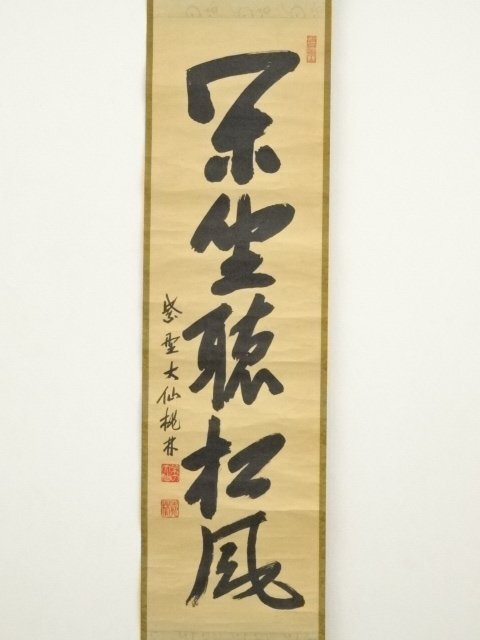 閑坐聴松風
紫野大仙桃林